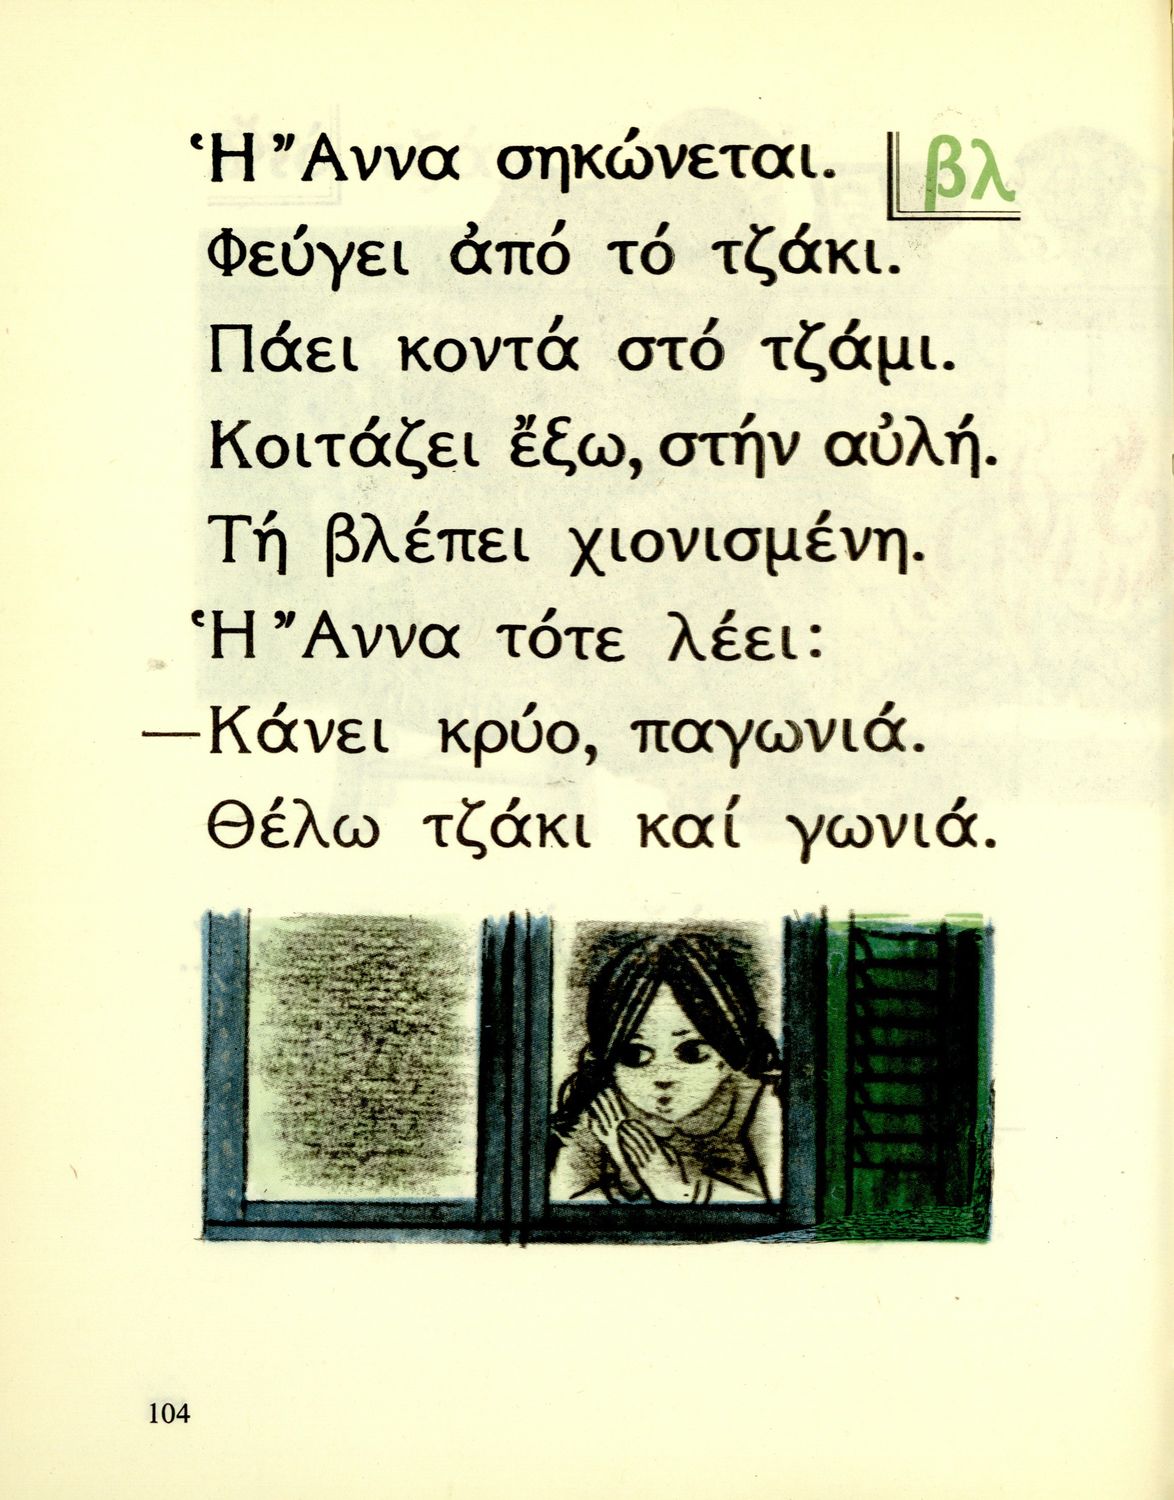 Ἡ Ἄννα σηκώνεται.
βλ
Φεύγει ἀπό τό τζάκι.
Πάει κοντά στό τζάμι.
Κοιτάζει ἔξω, στήν αὐλή.
Τή βλέπει χιονισμένη.
Ἡ Ἄννα τότε λέει:
—Κάνει κρύο, παγωνιά.
Θέλω τζάκι καί γωνιά.
104